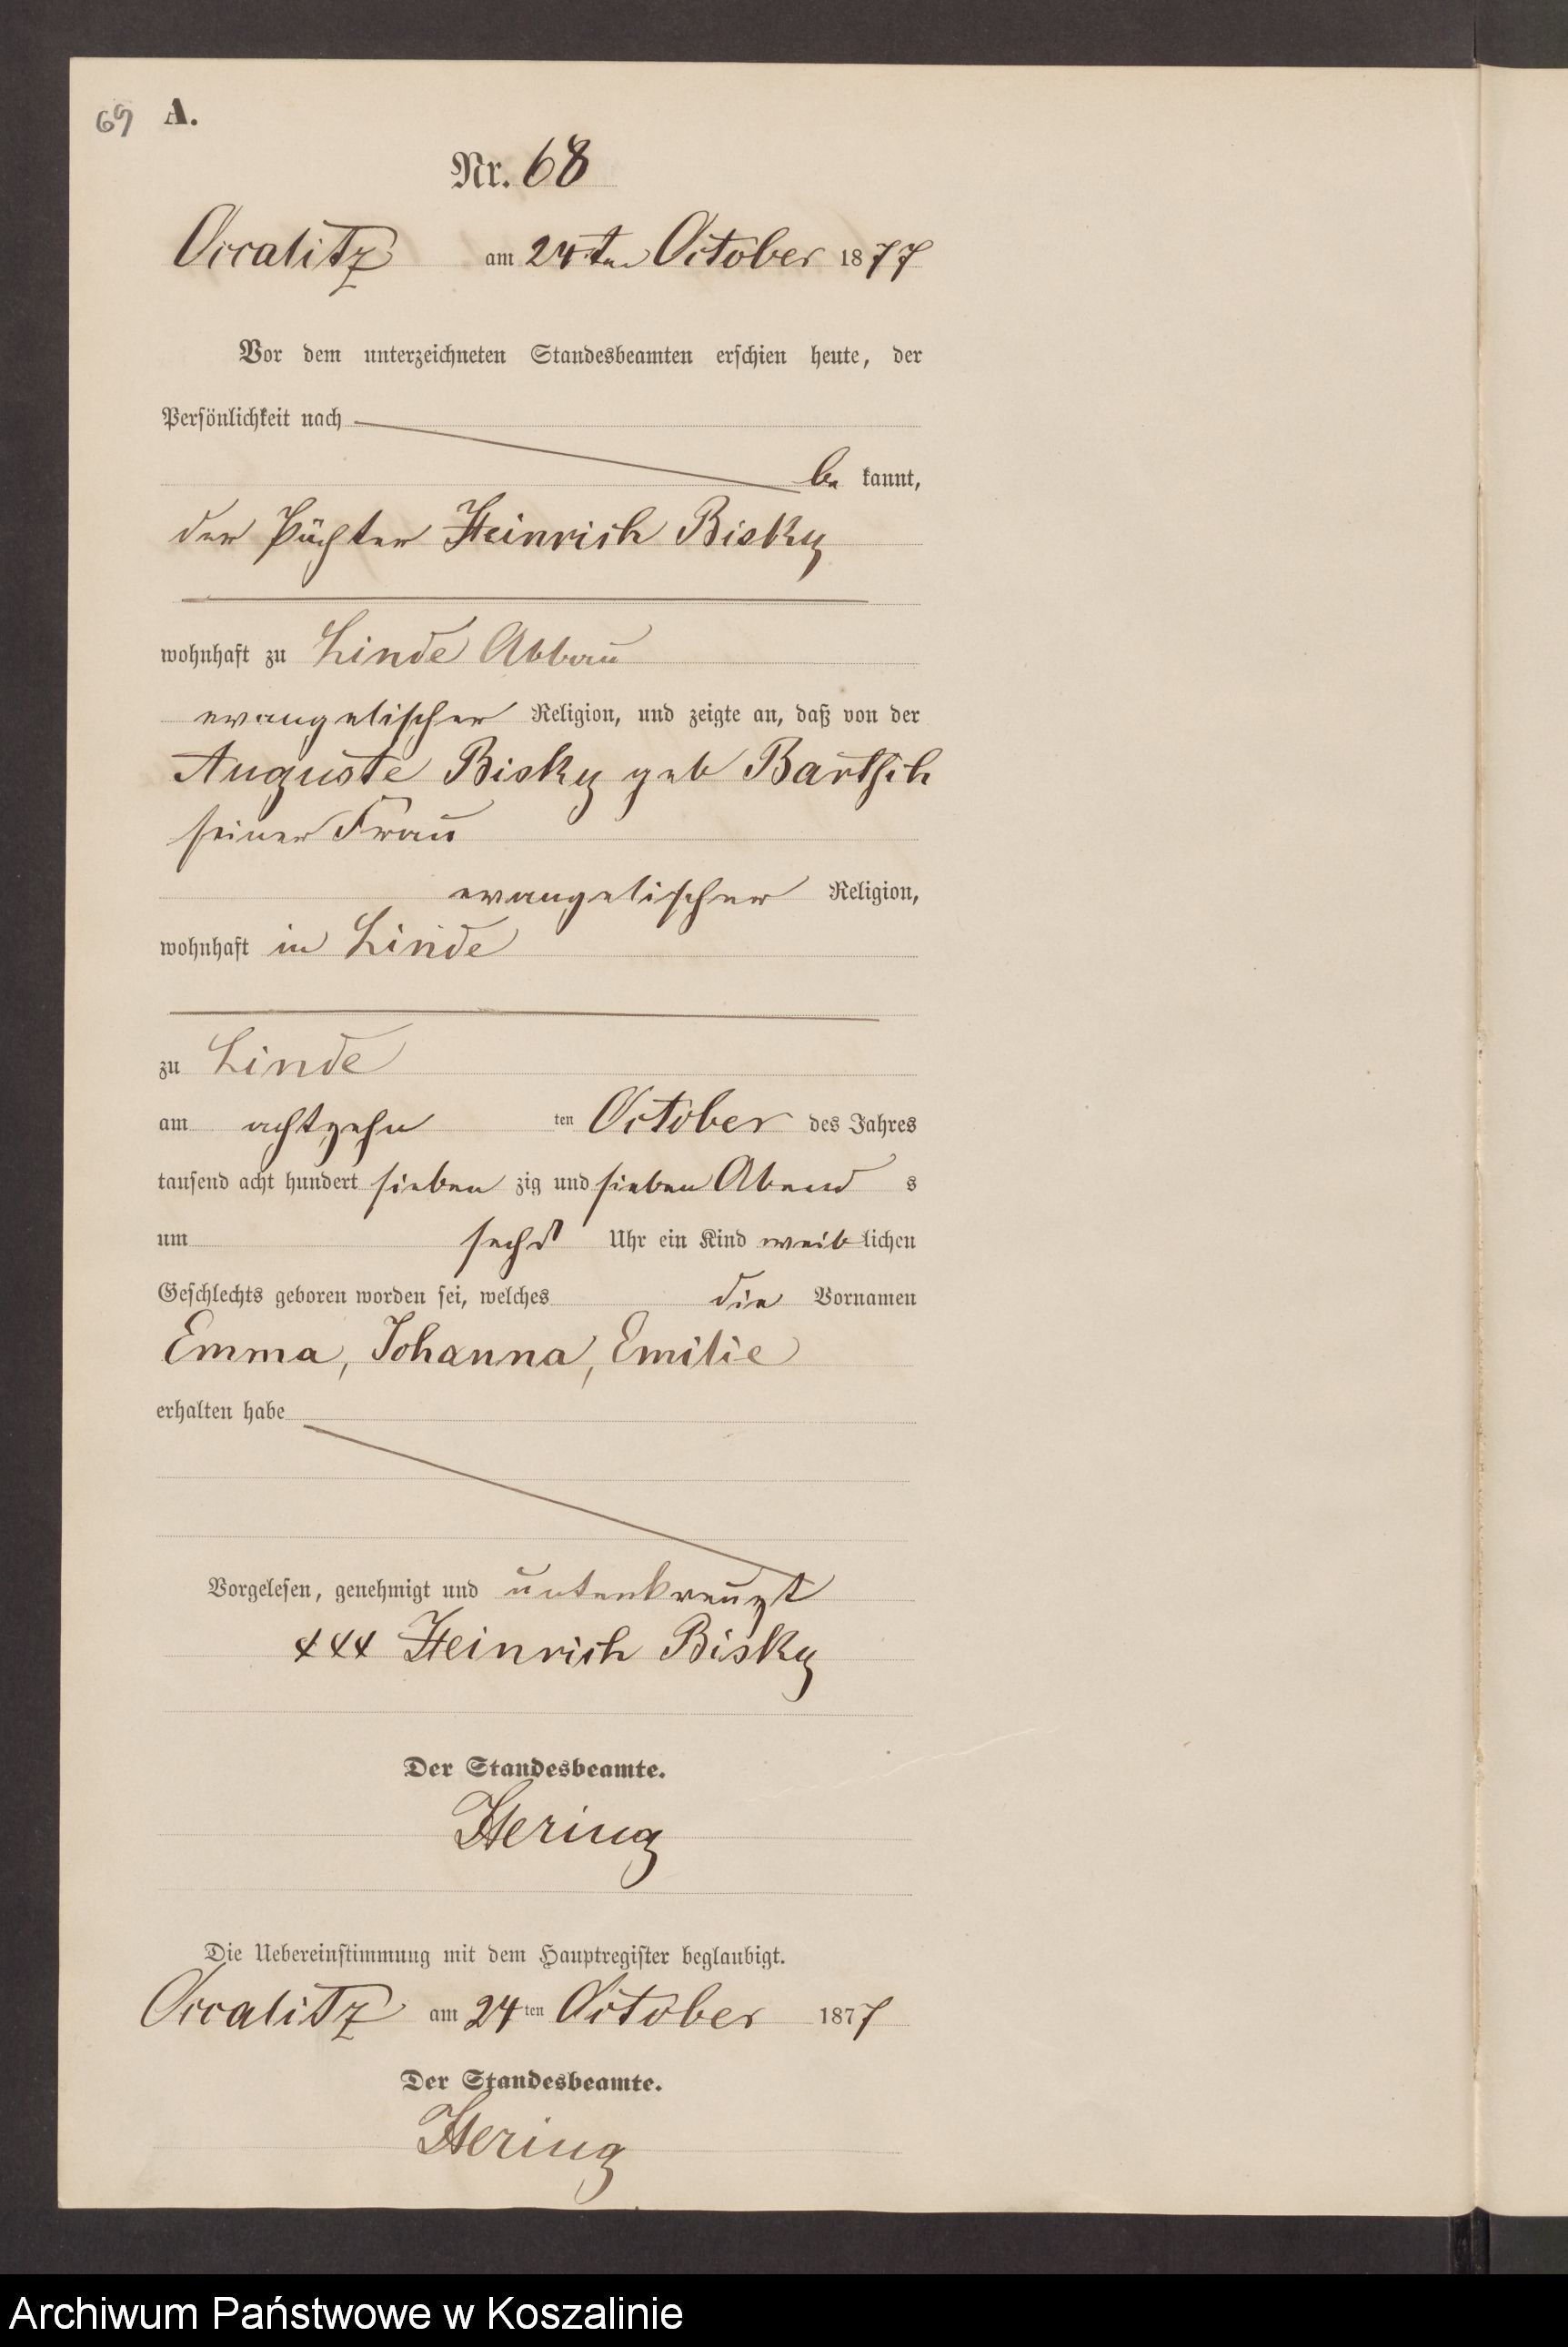 69 A.
Nr. 68
Occalitz am 24ten October 1877
Vor dem unterzeichneten Standesbeamten erschien heute, der
Persönlichkeit nach
be kannt,
der Pächter Heinrich Bisky
wohnhaft zu Linde Abbau
evangelischer Religion, und zeigte an, daß von der
Auguste Bisky geb Bartsch
seiner Frau
evangelischer Religion,
wohnhaft in Linde
zu Linde
am achtzehn ten October des Jahres
tausend acht hundert sieben zig und sieben Abend s
um sechs Uhr ein Kind weib lichen
Geschlechts geboren worden sei, welches die Vornamen
Emma, Johanna, Emilie
erhalten habe
Vorgelesen, genehmigt und unterkreuzt
xxx Heinrich Bisky
Der Standesbeamte.
Hering
Die Uebereinstimmung mit dem Hauptregister beglaubigt.
Occalitz am 24ten October 1877
Der Standesbeamte.
Hering
Archiwum Państwowe w Koszalinie